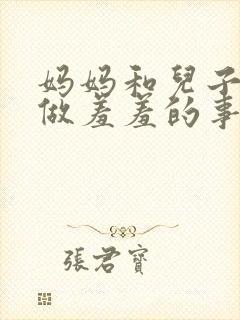 妈妈和兒子
做羞羞的事
張君寶